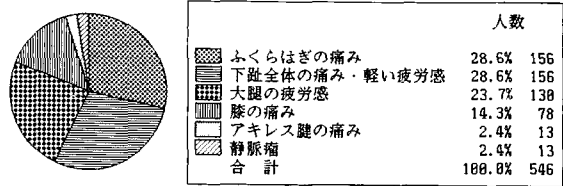 人数
ふくらはぎの痛み 28.6% 156
下趾全体の痛み・軽い疲労感 28.6% 156
大腿の疲労感 23.7% 130
膝の痛み 14.3% 78
アキレス腱の痛み 2.4% 13
静脈瘤 2.4% 13
合 計 100.0% 546